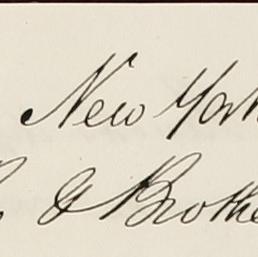 New York
& Brothe